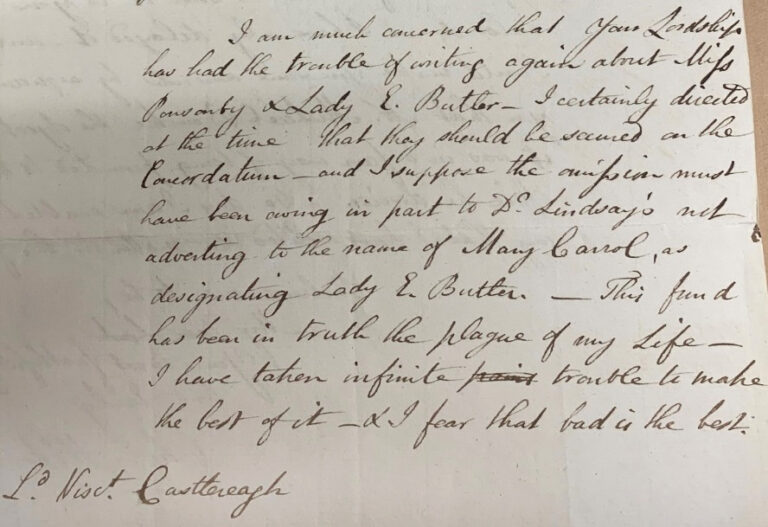 I am much concerned that Your Lordship
has had the trouble of writing again about Miss
Ponsonby & Lady E. Butler – I certainly directed
at the time that they should be secured on the
Concordatum – and I suppose the omission must
have been owing in part to Dr. Lindsay's not
adverting to the name of Mary Carrol, as
designating Lady E. Butler. – This fund
has been in truth the plague of my Life –
I have taken infinite pains trouble to make
the best of it – & I fear that bad is the best.
Ld. Visct. Castlereagh